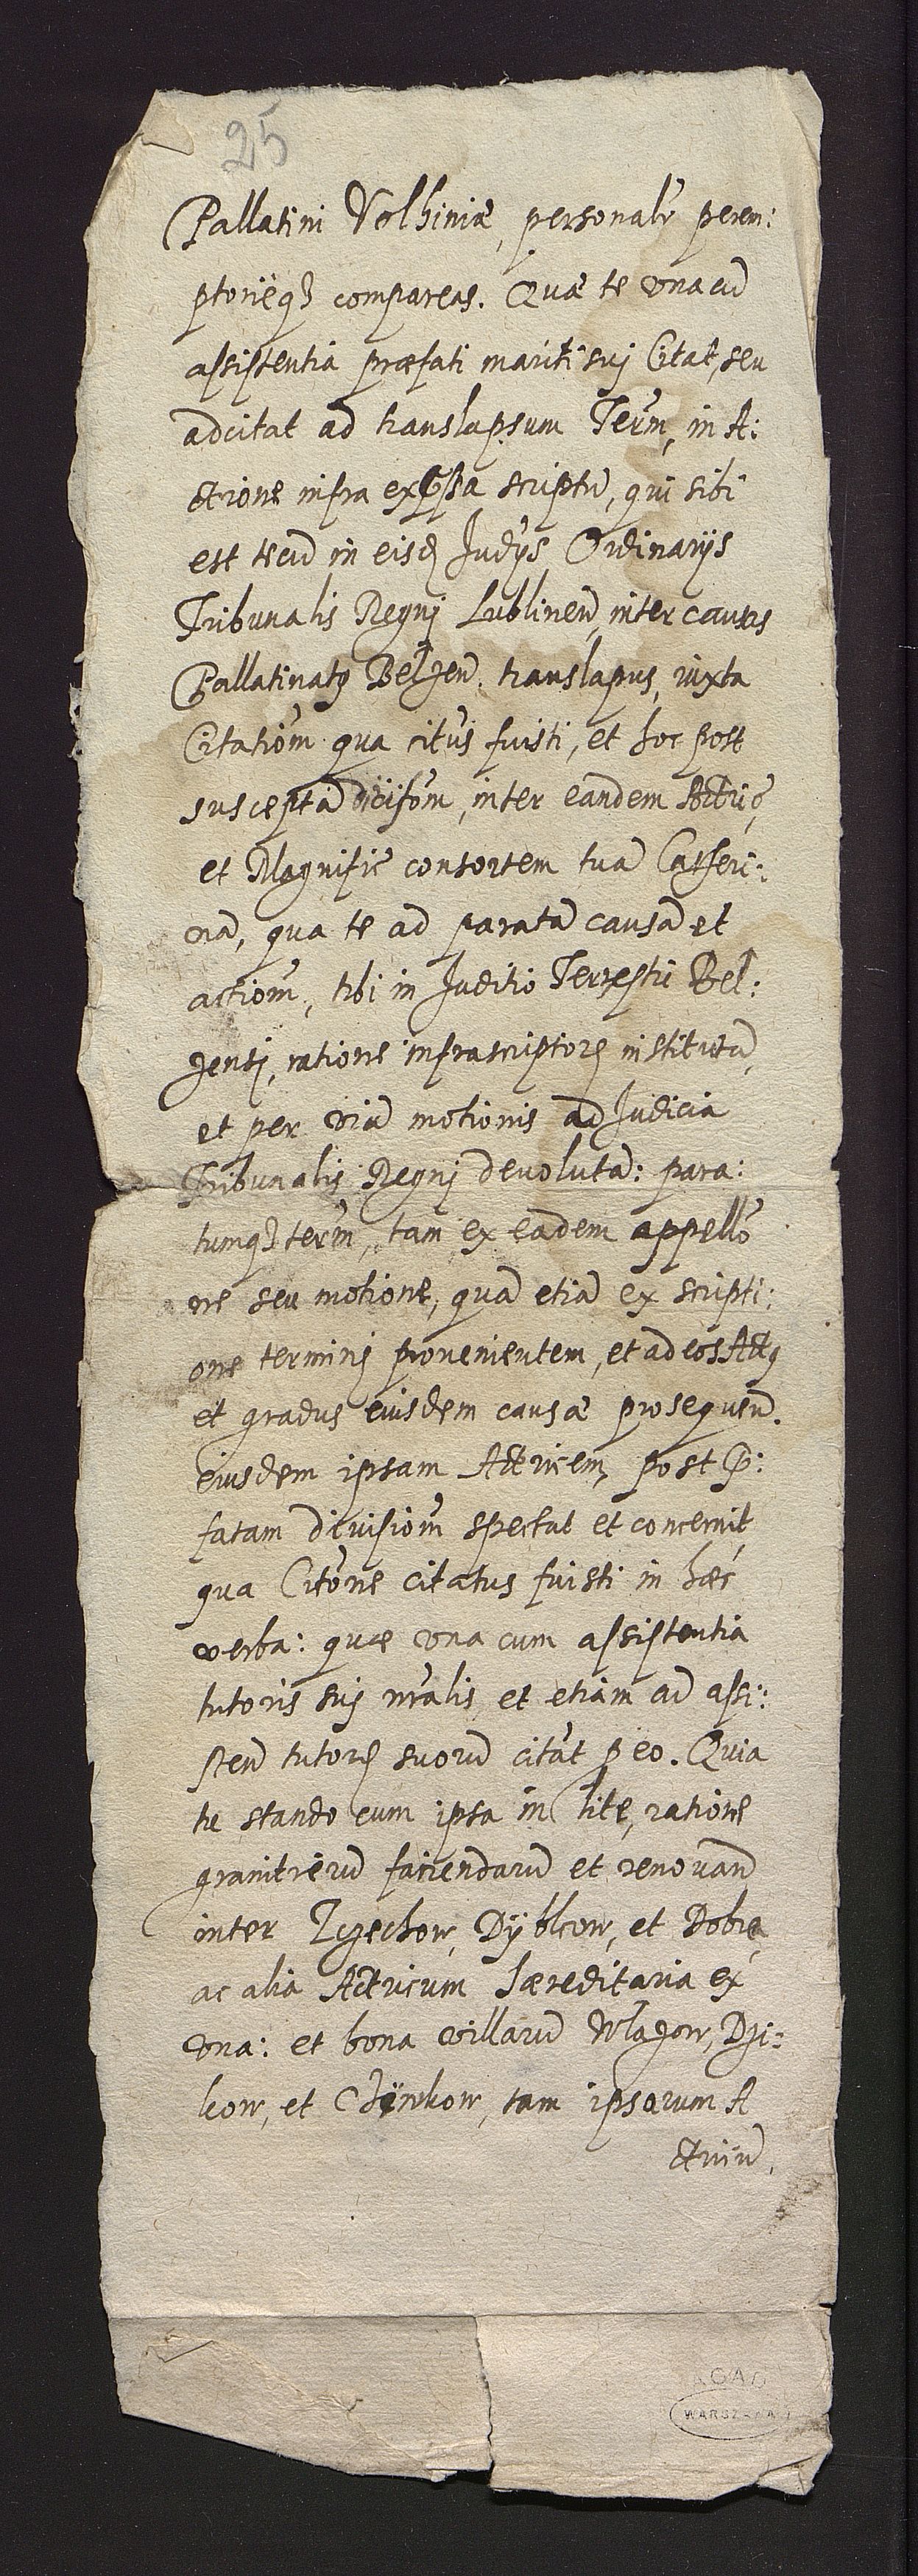 25
Pallatini Volhiniæ, personalr perem:
ptorieq3 compareas. Quæ te vna cu
assistentia præfati mariti suj Citat, seu
adcitat ad translapsum Term, in A:
ctione infra scriptu, qui sibi
est tecu in eisd Judijs Ordinarijs
Tribunalis Regnj Lublinen, inter causas
Pallatinatq Belzen. translapus, iuxta
Citatiom qua citus fuisti, et hoc post
suscepta inter eandem
et Magnifie consortem tua Catheri:
na, qua te ad parata causa et
actiom, tibi in Juditio Terrestri Bel:
zensj, ratione infrascriptorz instituta,
et per via motionis ad Judicia
Tribunalis Regnj deuoluta: para:
tumq3 term, tam ex eadem appello
ne seu motione, qua etia ex scripti:
one terminj prouenientem, et ad eos Actq
et gradus eiusdem causæ prosequen.
eiusdem ipsam Actricem, post P:
fatam diuisiom spectat et concernit,
qua Citone citatus fuisti in hæc
verba: quæ vna cum assistentia
tutoris suj nralis, et etiam ad assi:
sten tutorz suoru citat p eo. Quia
tu stando cum ipsa in lite, ratione
granitieru faciendaru et renouand
inter Zczechow, Dyblcow, et Dobre,
ac alia Actricum hæreditaria ex
vna: et bona villaru Dzi:
kow, et tam ipsarum A
ctricu,
AGAD
WARSZAWA